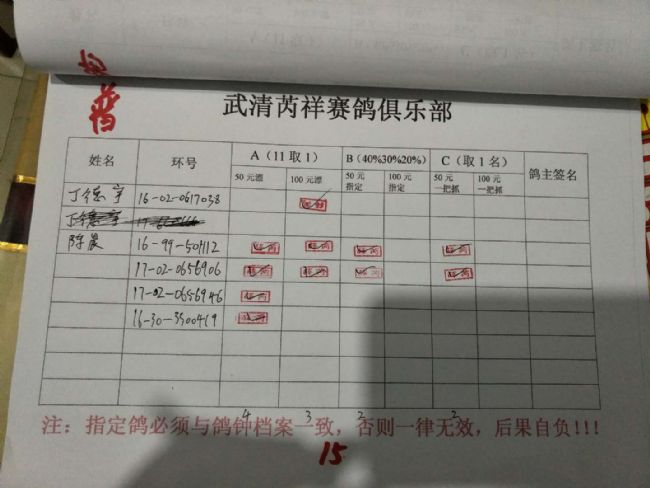 普
武清芮祥赛鸽俱乐部
姓名 环号 A（11取1） B（40%30%20%） C（取1名） 鸽主签名
50元漂 100元漂 50元指定 100元指定 50元一把抓 100元一把抓
丁德宇 16-02-0617038
陈晨 16-99-501112
17-02-0656906
17-02-0656946
16-30-3500419
4 3 2 2
注：指定鸽必须与鸽钟档案一致，否则一律无效，后果自负!!!
15